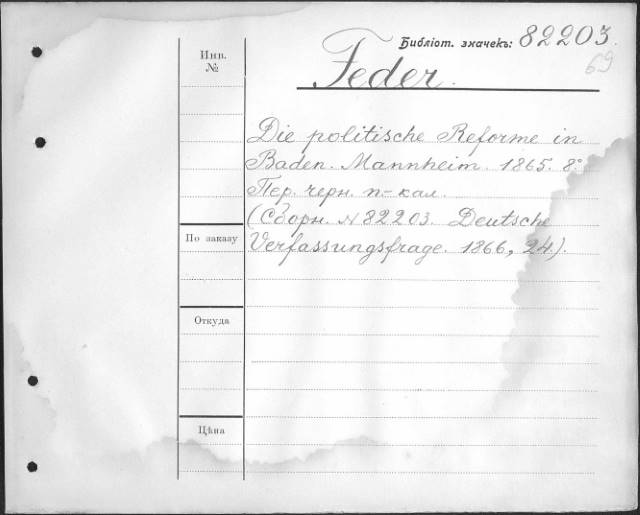 Библіот. значекъ: 82203.
69
Инв.
№
Feder.
Die politische Reforme in
Baden. Mannheim. 1865. 8°
Пер. черн. п.-кал.
(Сборн. № 82203. Deutsche
Verfassungsfrage. 1866, 24).
По заказу
Откуда
Цѣна